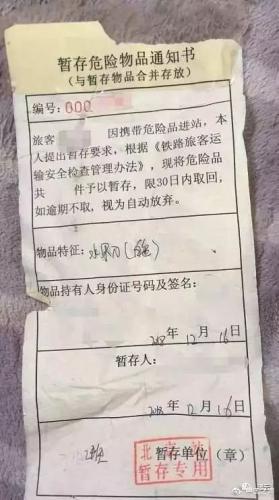 暂存危险物品通知书
（与暂存物品合并存放）
编号：000
旅客 因携带危险品进站，本
人提出暂存要求，根据《铁路旅客运
输安全检查管理办法》，现将危险品
共 件予以暂存，限30日内取回，
如逾期不取，视为自动放弃。
物品特征：水果刀
物品持有人身份证号码及签名：
2018年12月16日
暂存人：
2018年12月16日
暂存单位（章）
暂存专用